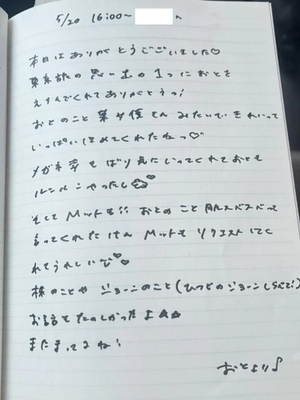 5/20 16:00~
本日はありがとうございました♡
東京旅の思い出の1つにおとを
えらんでくれてありがとうっ!
おとのこと 女優さんみたいできれいって
いっぱいほめてくれたねっ♡
メガネ
ルンルンやったし
そしてMットも!! おとのこと 肌スベスベって
言ってくれたけん Mットも リクエストしてく
れてうれしい♡
株のことや ショーンのこと(ひつじのショーンしらべて!)
お話もたのしかったよ
またまってるね!
おとより♪